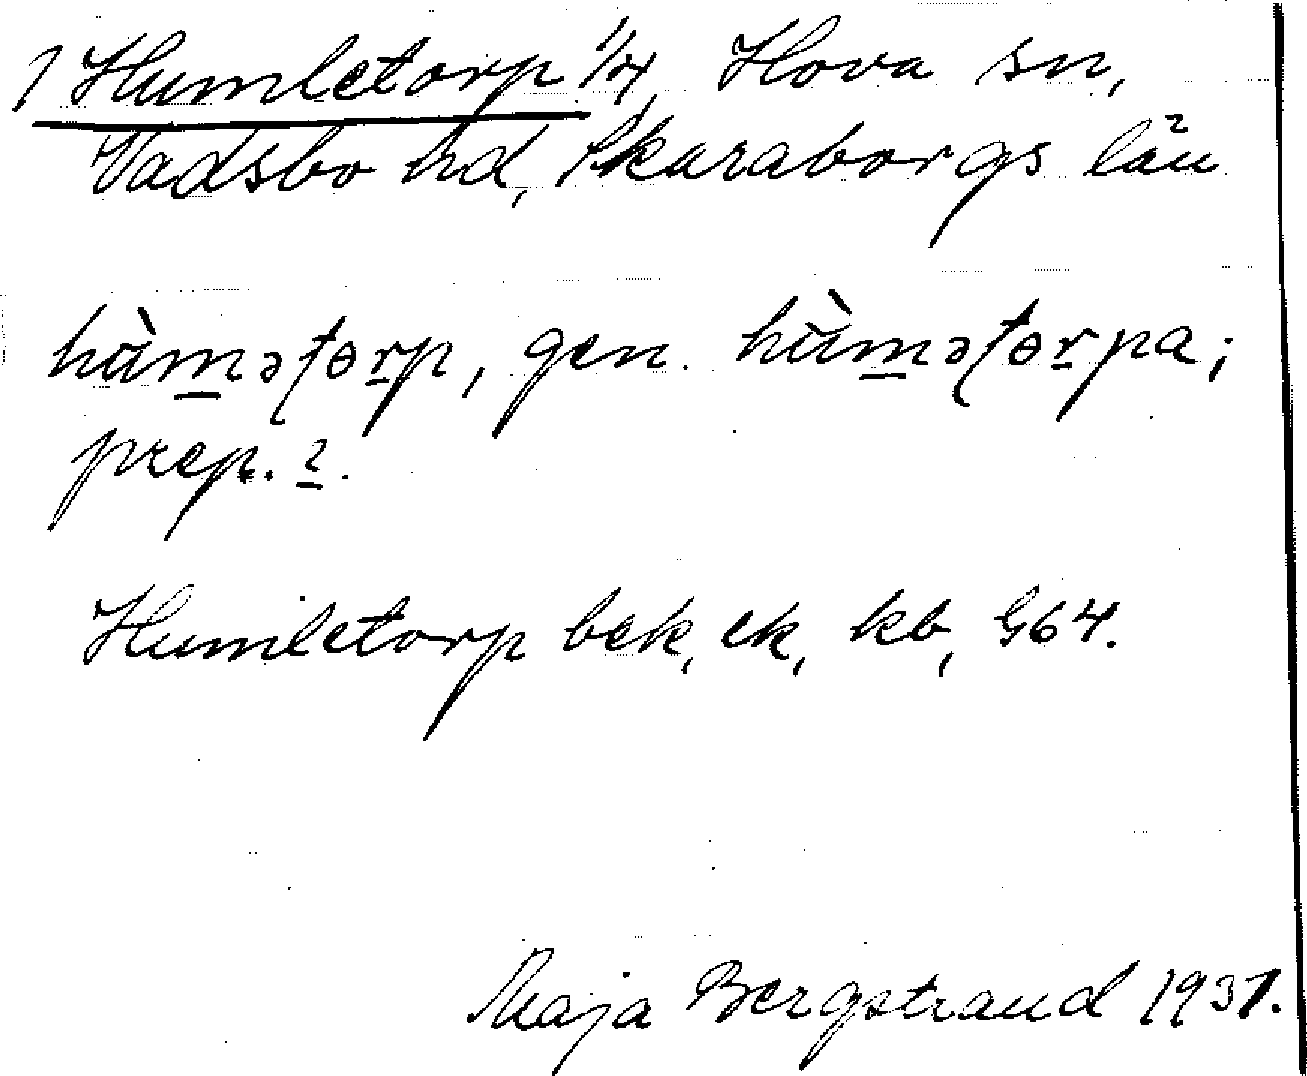 1 Humletorp 1/4, Hova sn,
Vadsbo hd, Skaraborgs län
hùmətorp, gen. hùmətorpa;
prep. ɩ.
Humletorp bek, ek, kb, G64.
Maja Bergstrand 1937.